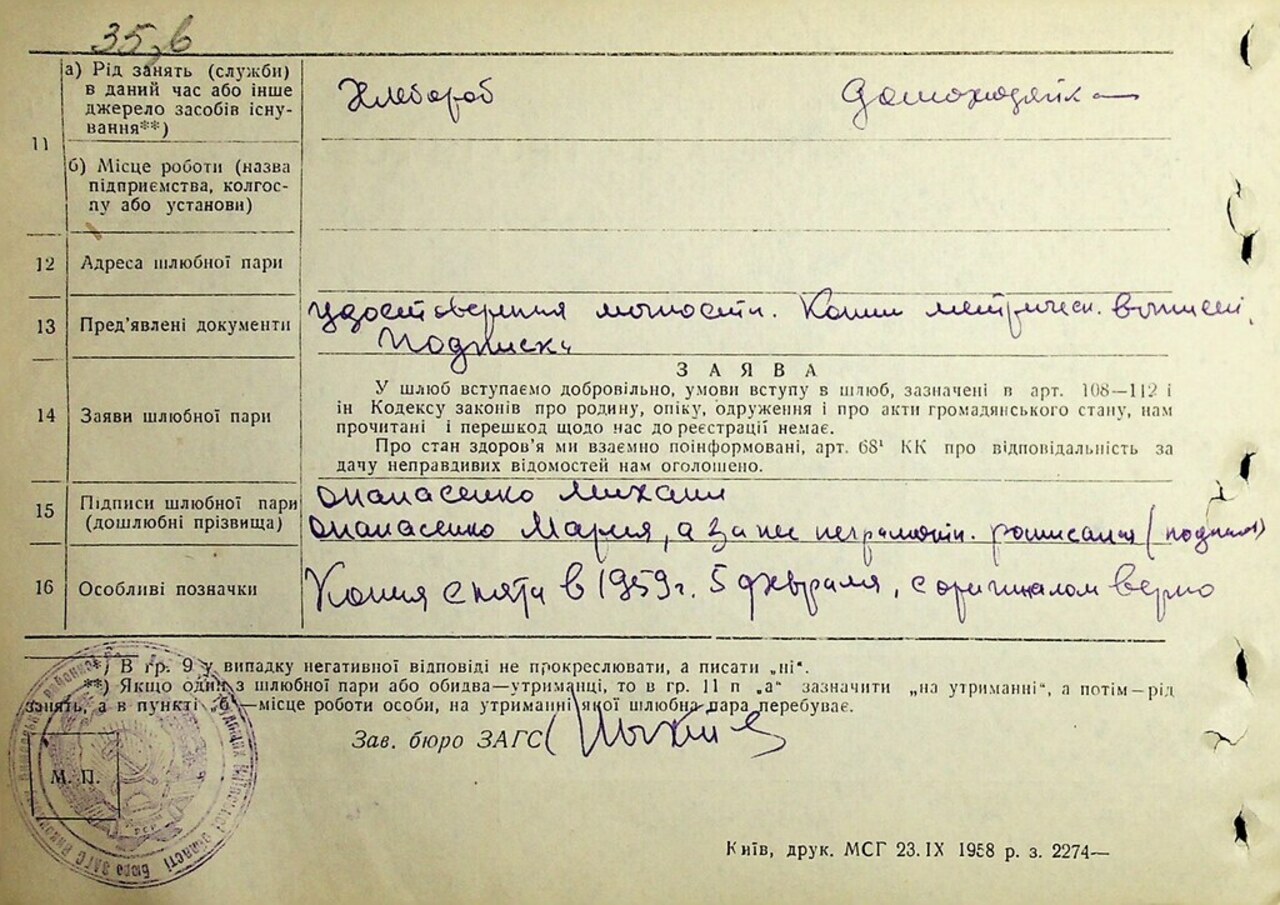 35, в
11
а) Рід занять (служби)
в даний час або інше
джерело засобів існу-
вання**)
Хлебороб
Домохозяйка
б) Місце роботи (назва
підприємства, колгос-
пу або установи)
12
Адреса шлюбної пари
13
Пред'явлені документи
удостоверения личности. Копии метрическ. выписей,
Подписки
14
Заяви шлюбної пари
ЗАЯВА
У шлюб вступаємо добровільно, умови вступу в шлюб, зазначені в арт. 108—112 і
ін Кодексу законів про родину, опіку, одруження і про акти громадянського стану, нам
прочитані і перешкод щодо нас до реєстрації немає.
Про стан здоров'я ми взаємно поінформовані, арт. 68¹ КК про відповідальність за
дачу неправдивих відомостей нам оголошено.
15
Підписи шлюбної пари
(дошлюбні прізвища)
Опанасенко Михаил
Опанасенко Мария, а за нее неграмотн. росписался (подпись)
16
Особливі позначки
Копия снята в 1959 г. 5 февраля, с оригиналом верно
*) В гр. 9 у випадку негативної відповіді не прокреслювати, а писати „ні“.
**) Якщо один з шлюбної пари або обидва—утриманці, то в гр. 11 п „а“ зазначити „на утриманні“, а потім—рід
занять, а в пункті „б“—місце роботи особи, на утриманні якої шлюбна пара перебуває.
Зав. бюро ЗАГС (
М. П.
Київ, друк. МСГ 23.IX 1958 р. з. 2274—